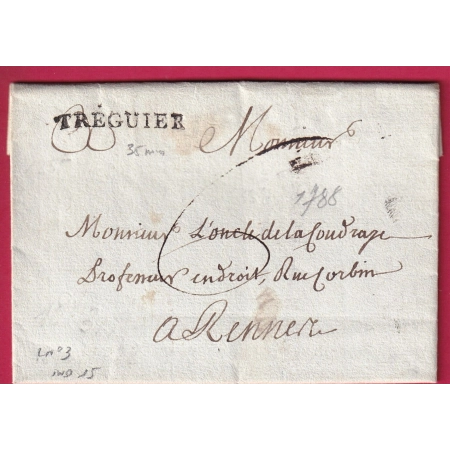 TRÉGUIER
35mm
Monsieur
1788
Monsieur L'oncle de la Coudraye
Professeur en droit, Rue Corbin
a Rennes
L n° 3
ind 15